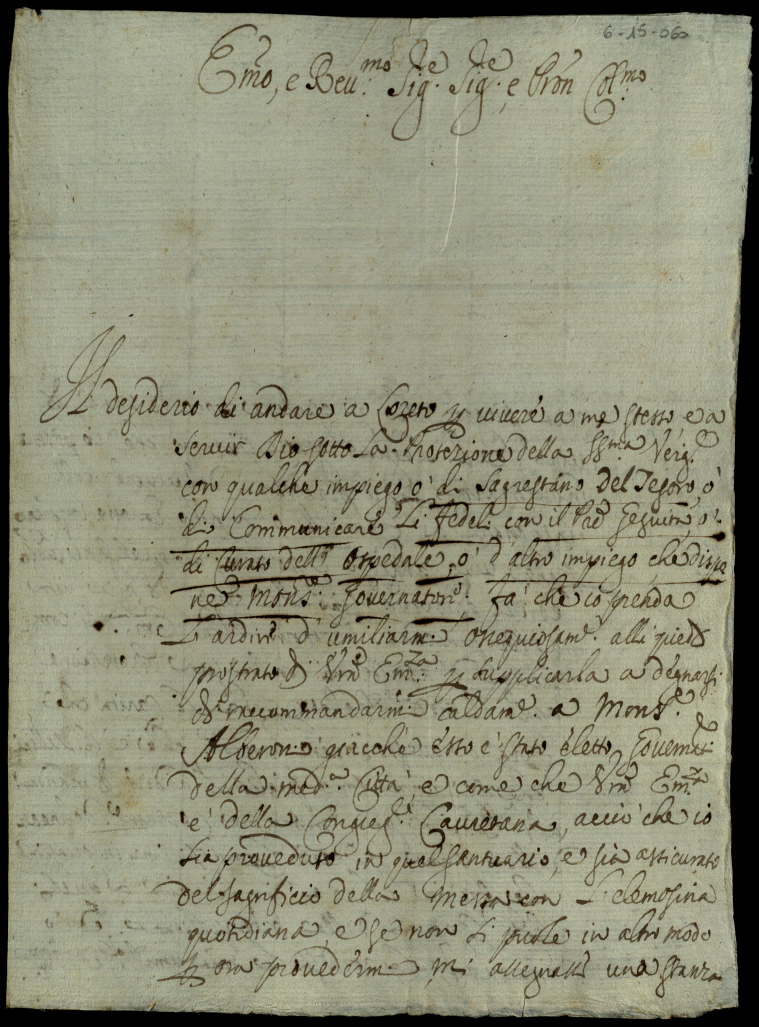 6-15-060
Em̃o, e Reu.mo Sig.e Sig.e, e Prõn Col.mo
Il desiderio di andare a Loreto p viuere a me stesso, e a
seruir Dio sotto la Protezione della SS.ma Verg.e
con qualche impiego o' di Sagrestano del Tesoro, o'
di Communicare li fedeli con il Pad
di Curato dell' Ospedale, o' d'altro impiego, che dispo
ne Mons.e Gouernatore. fa' che io prenda
l'ardire d'umiliarmi ossequiosam.e alli piedi
prostrato di Vrã Em.za p supplicarla a degnarsi
di raccommandarmi caldam.e a Mons.e
giacché esso è stato eletto Gouernat.
della med.a Città, e come che Vrã Em.za
e' della Congreg.e Lauretana, acciò che io
sia proueduto in quel Santuario, e sia assicurato
del sagrificio della Messa con l'elemosina
quotidiana, e se non si puole in altro modo
p ora prouedermi mi una stanza